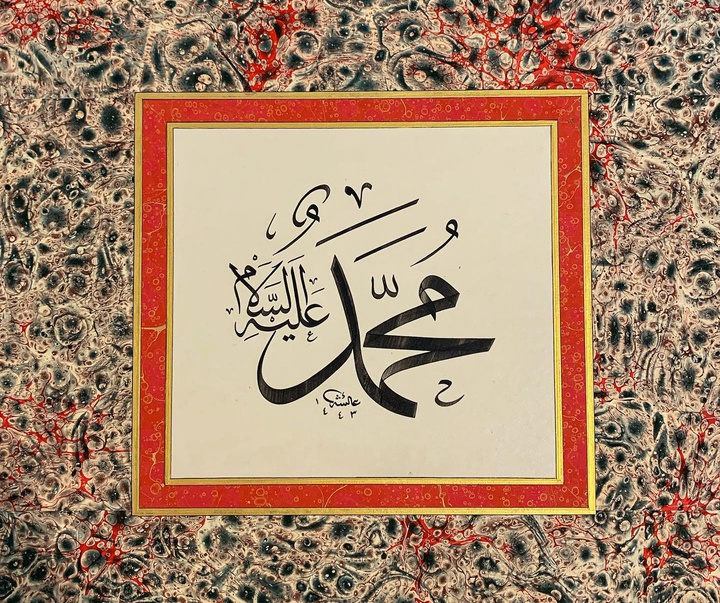 مُحَمَّدٌ
عَلَيْهِ السَّلَامُ
عائشة
١٤٤٣